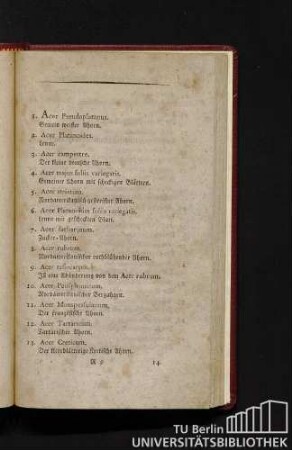 1. Acer Pseudoplatanus.
Gemein weißer Ahorn.
2. Acer Platanoides.
Lenne.
3. Acer campestre.
Der kleine deutsche Ahorn.
4. Acer majus foliis variegatis.
Gemeiner Ahorn mit scheckigen Blättern.
5. Acer striatum.
Nordamerikanisch gestreifter Ahorn.
6. Acer Platanoides foliis variegatis.
Lenne mit gescheckten Blatt.
7. Acer saccharinum.
Zucker-Ahorn.
8. Acer rubrum.
Nordamerikanischer rothblühender Ahorn.
9. Acer
Ist eine Abänderung von dem Acer rubrum.
10. Acer Pensylvanicum.
Nordamerikanischer Bergahorn.
11. Acer Monspessulanum.
Der französische Ahorn.
12. Acer Tartaricum.
Tartarischer Ahorn.
13. Acer Creticum.
Der kleinblättrige kretische Ahorn.
14.
TU Berlin
UNIVERSITÄTSBIBLIOTHEK